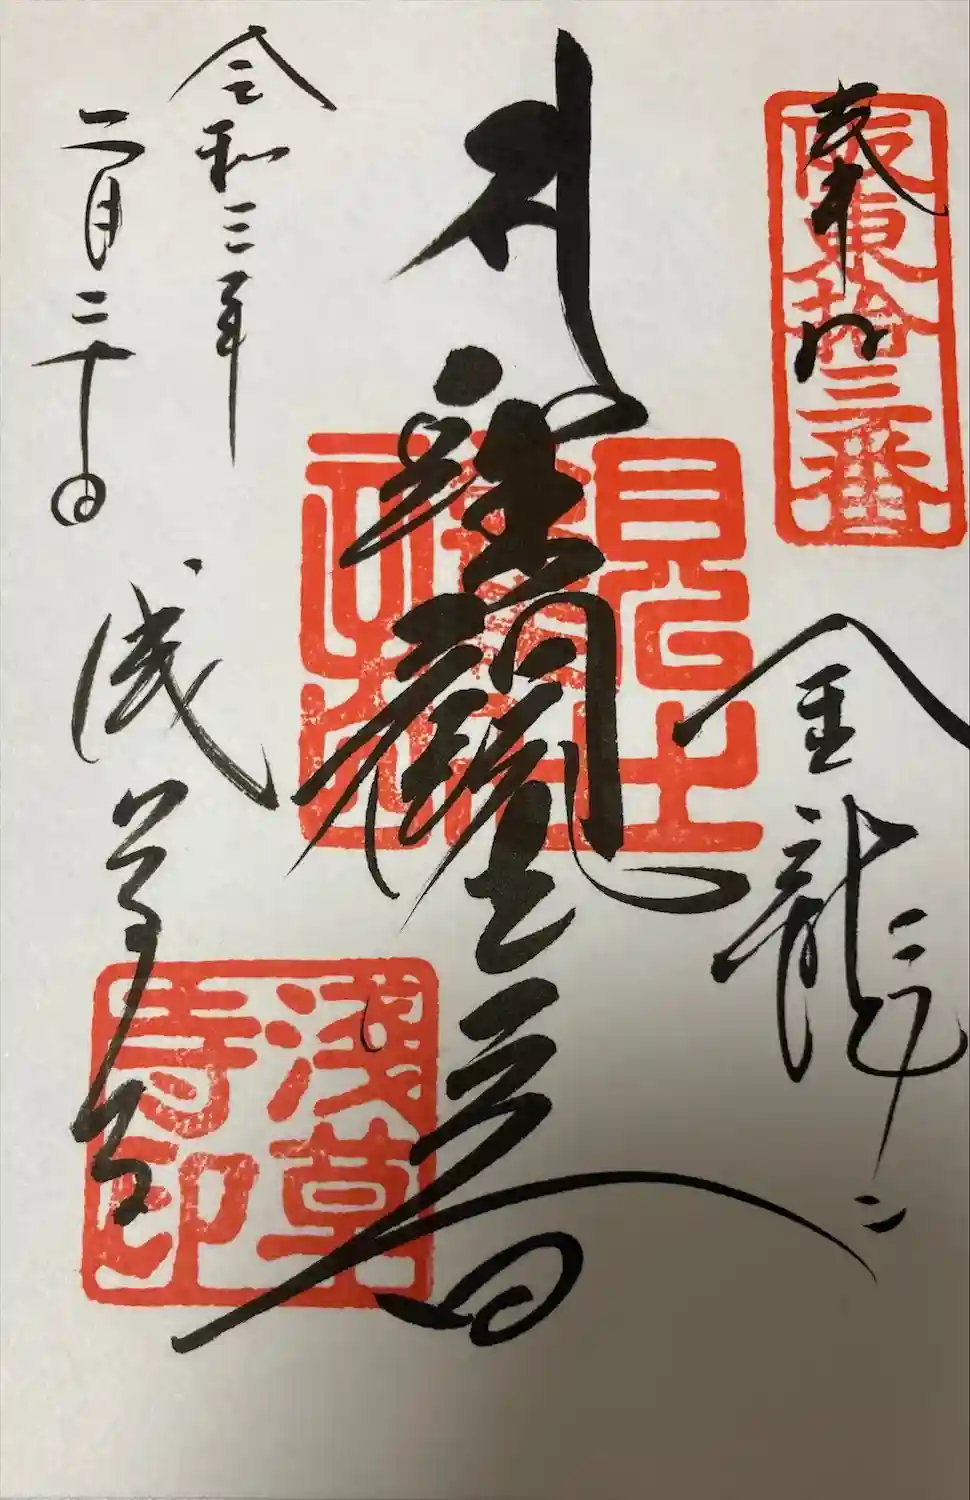 奉拝
阪東拾三番
金龍山
聖観世音
令和三年
二月二十日
浅草寺
浅草寺印